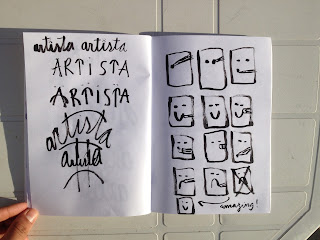 artista artista
ARTISTA
ARTISTA
artista
artista
amazing!